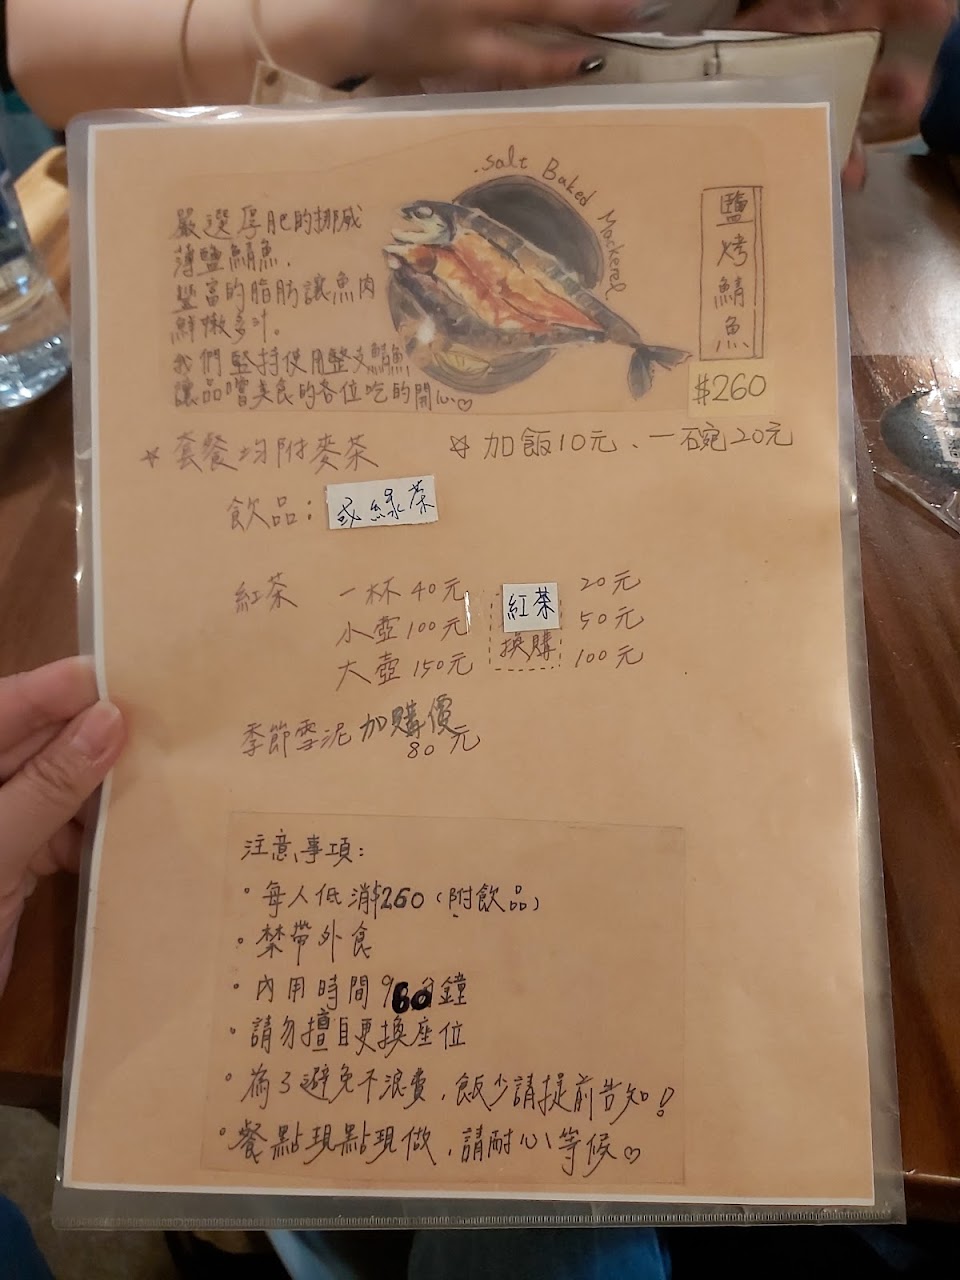 Salt Baked Mackerel
鹽烤鯖魚
$260
嚴選厚肥的挪威
薄鹽鯖魚.
豐富的脂肪讓魚肉
鮮嫩多汁。
我們堅持使用整支鯖魚
讓品嚐美食的各位吃的開心♡
☆套餐均附麥茶
☆加飯10元、一碗20元
飲品: 或綠茶
紅茶 一杯40元 紅茶 20元
小壺100元 換購 50元
大壺150元 100元
季節雪泥 加購價
80元
注意事項:
•每人低消$260(附飲品)
•禁帶外食
•內用時間960分鐘
•請勿擅自更換座位
•為了避免不浪費,飯少請提前告知!
•餐點現點現做,請耐心等候♡